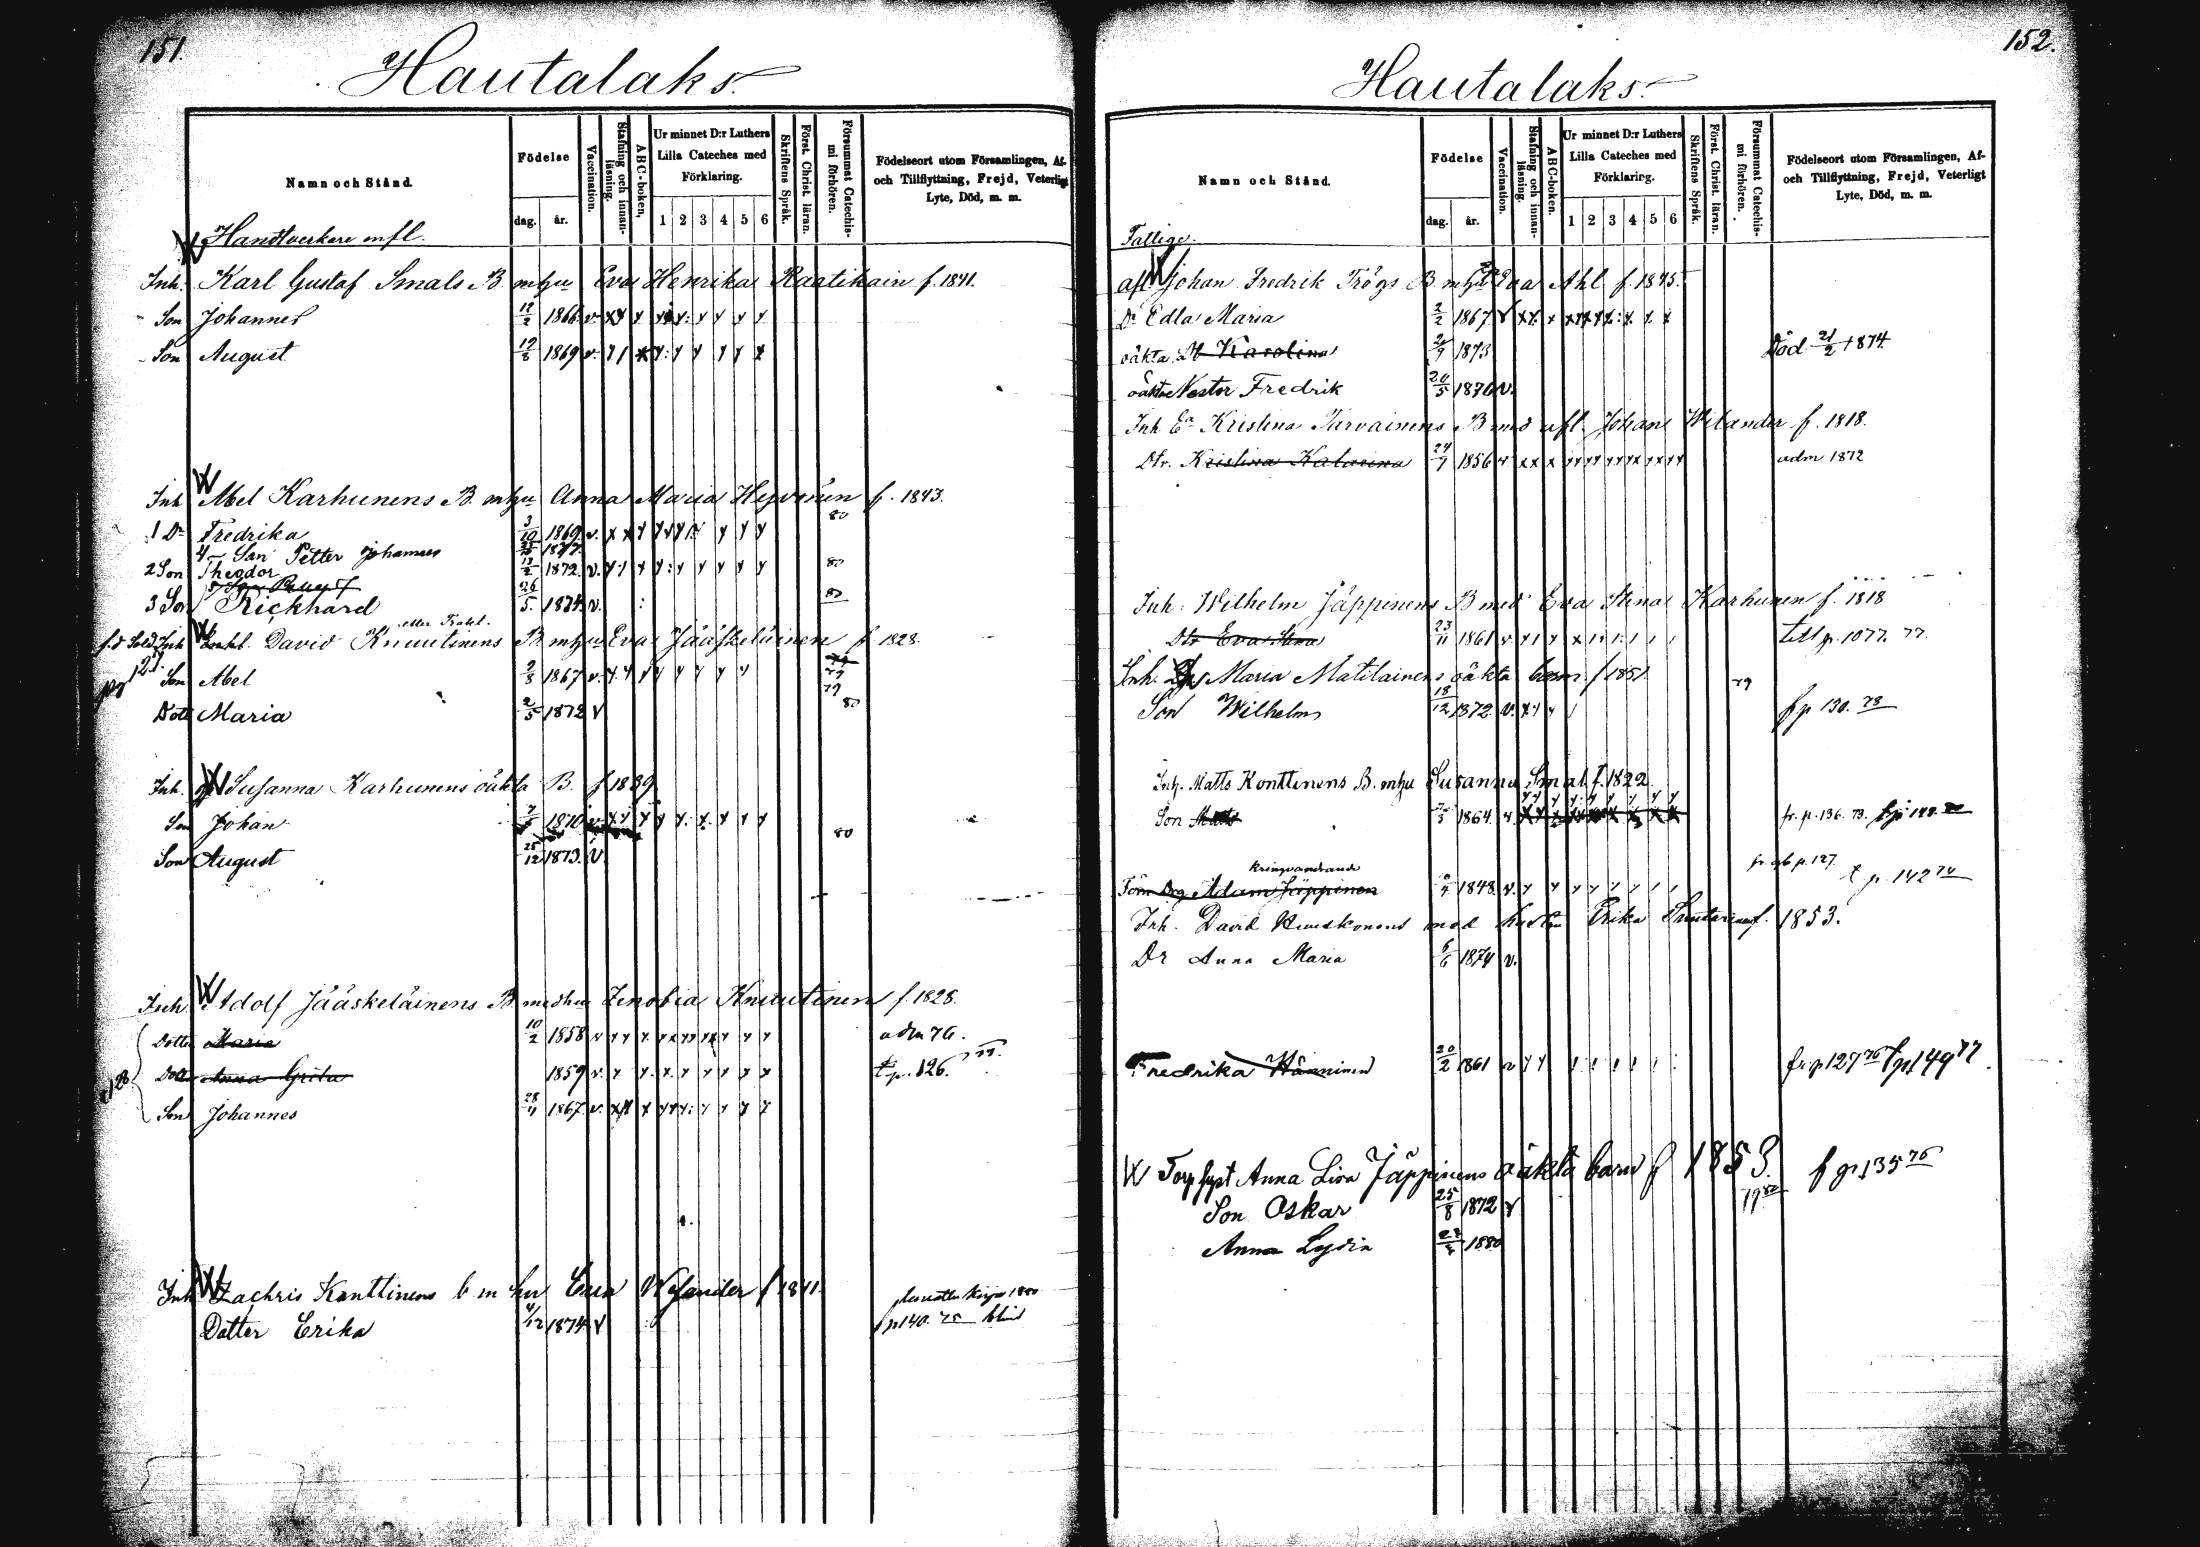 151.
Hautalaks.
Namn och Stånd.
Födelse
dag.
år.
Vaccination.
Stafning och innan-läsning.
ABC-boken.
Ur minnet D:r Luthers Lilla Cateches med Förklaring.
1 2 3 4 5 6
Skriftens Språk.
Först. Christ. läran.
Försummat Catechis-mi förhören.
Födelseort utom Församlingen, Af- och Tillflyttning, Frejd, Veterligt Lyte, Död, m. m.
Handtverkare mfl.
Inh. Karl Gustaf Smals B. mhu Eva Henrika Raatikain f. 1841.
Son Johannes 12/2 1866 v.
Son August 1869 v.
Inh Abel Karhunens B. mhu Anna Maria Hyvönen f. 1843.
1 Dr Fredrika 3/10 1869 v. 80
4 Son Petter Johannes 1877
2 Son Theodor 13/2 1872 v. 80
3 Son Rickhard 26/5 1874 v. 80
Inh David Knuutinens B mhu Eva Jääskeläinen f 1828.
Son Abel 1867 v. 79
Dott Maria 2/5 1872 v 80
Inh. Susanna Karhunens oäkta B. f 1839
Son Johan 1870 v. 80
Son August 25/12 1873. v.
Inh. Adolf Jääskeläinens B medhu Zenobia Knuutinen f. 1828.
Dotter Maria 10/2 1858 v adm 76.
Dotter Anna Greta 1859 v. t p. 126. 77.
Son Johannes 28/11 1867 v.
Inh Zachris Konttinens b m hu Eva Wilander f 1841.
Dotter Erika 4/12 1874 v p 140. 75 blind
152.
Hautalaks.
Namn och Stånd.
Födelse
dag.
år.
Vaccination.
Stafning och innan-läsning.
ABC-boken.
Ur minnet D:r Luthers Lilla Cateches med Förklaring.
1 2 3 4 5 6
Skriftens Språk.
Först. Christ. läran.
Försummat Catechis-mi förhören.
Födelseort utom Församlingen, Af- och Tillflyttning, Frejd, Veterligt Lyte, Död, m. m.
Fattige.
afl Johan Fredrik Trögs B mhu Eva Ahl f. 1845.
Dr Edla Maria 2/2 1867 v
oäkta Dr Karolina 1873 Död 21/2 1874.
oäkta Nestor Fredrik 20/5 1876 v.
Inh Kristina Turvainens B med afl. Johan Wilander f. 1818.
Dtr. Kristina Katarina 24/7 1856 v adm. 1872
Inh. Wilhelm Jäppinens B med Eva Stina Karhunen f. 1818
Dtr Eva Stina 23/11 1861 v till p. 1077. 77.
Inh. Maria Matilainens oäkta barn f 1851 79
Son Wilhelm 18/12 1872. v. f p 130. 78
Inh. Matts Konttinens B. mhu Susanna Smal f. 1822.
Son Mats 1864. v. fr. p. 136. 73.
kringvandrande
Adam Jäppinen 1848 v. fr. p. 127. t p. 142 74
Inh. David Kuoskonens med hustru Erika f. 1853.
Dr Anna Maria 6/6 1874 v.
Fredrika Hänninen 20/2 1861 v fr. p 127 76 t p 149 77.
Anna Lisa Jäppinens oäkta barn f 1853. f p 135 76
Son Oskar 25/8 1872 v 79 80
Anna Lydia 1880